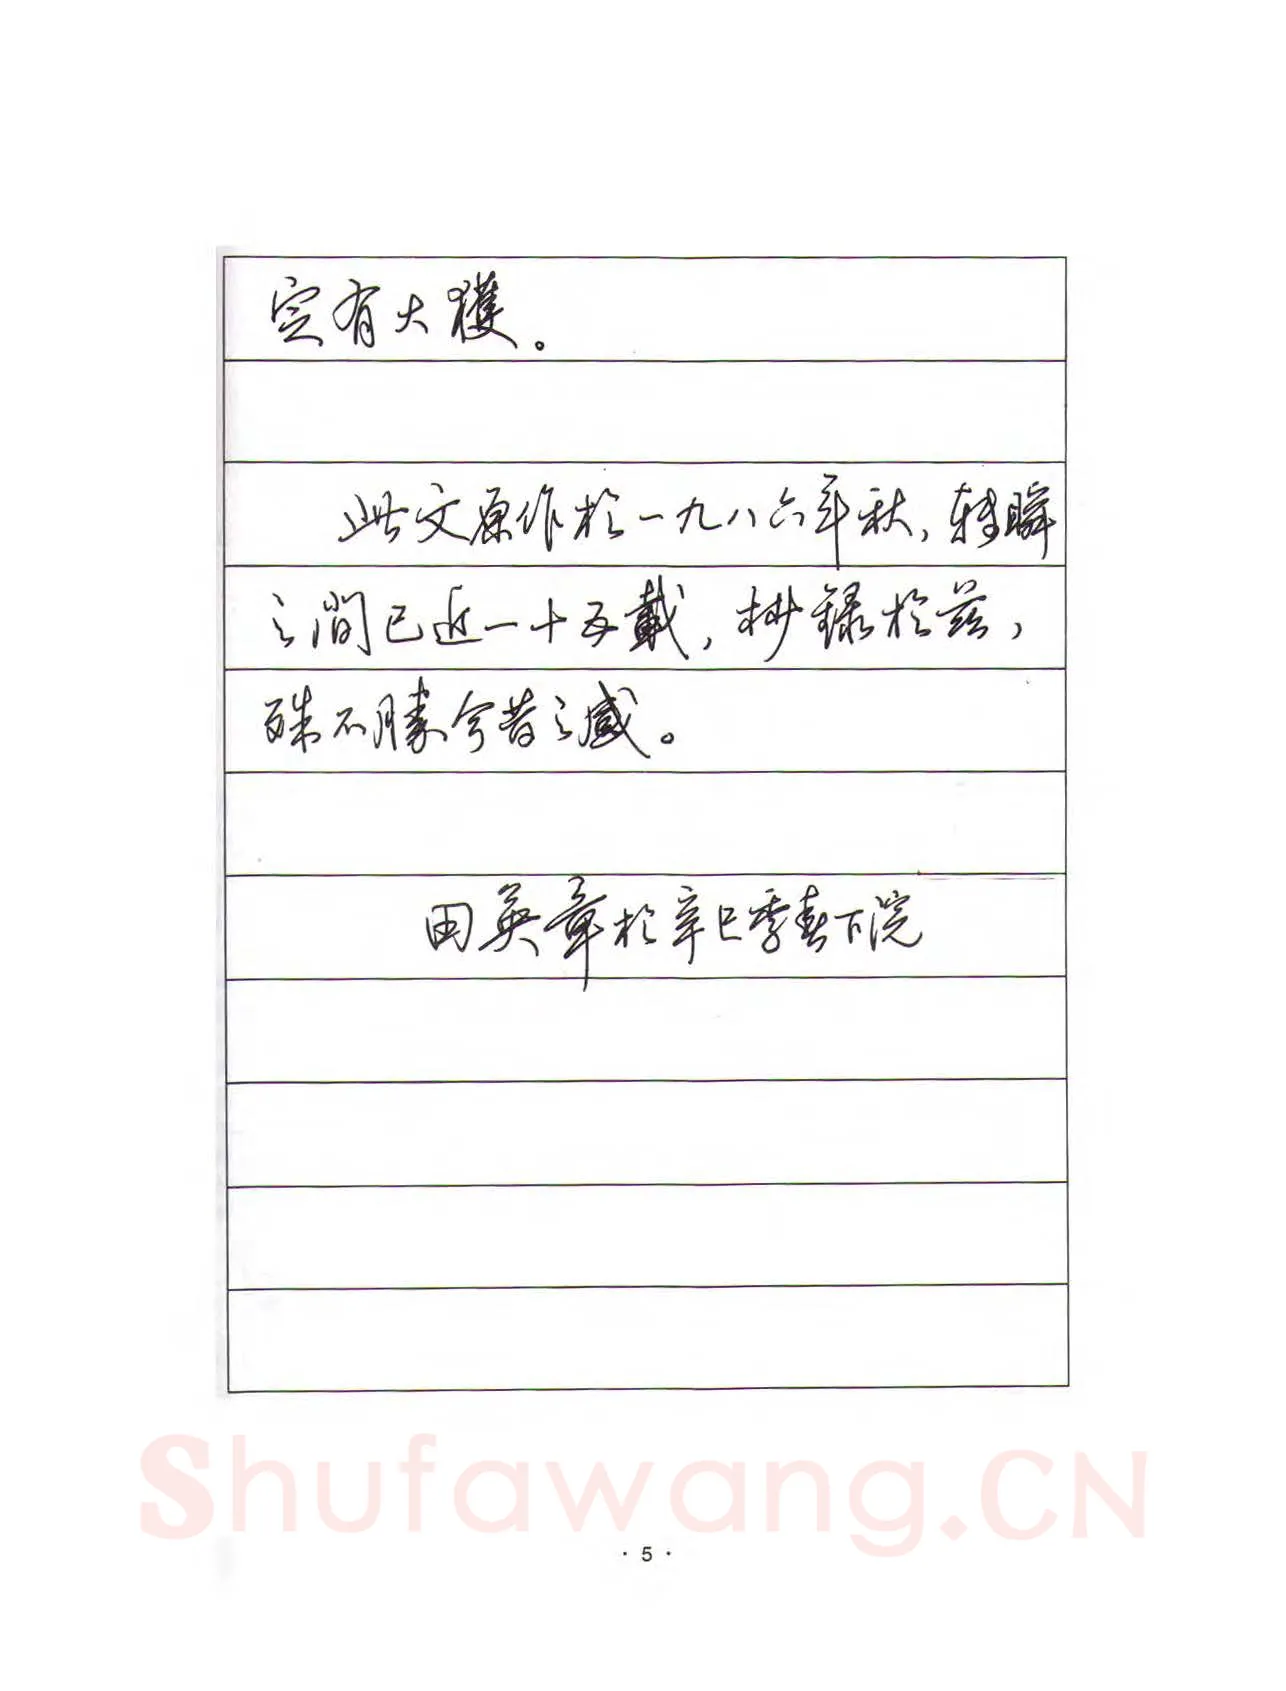 定有大獲。
此文原作於一九八六年秋，转瞬
之間已近一十五載，抄録於兹，
殊不勝今昔之感。
田英章於辛巳季春下浣
Shufawang.CN
· 5 ·